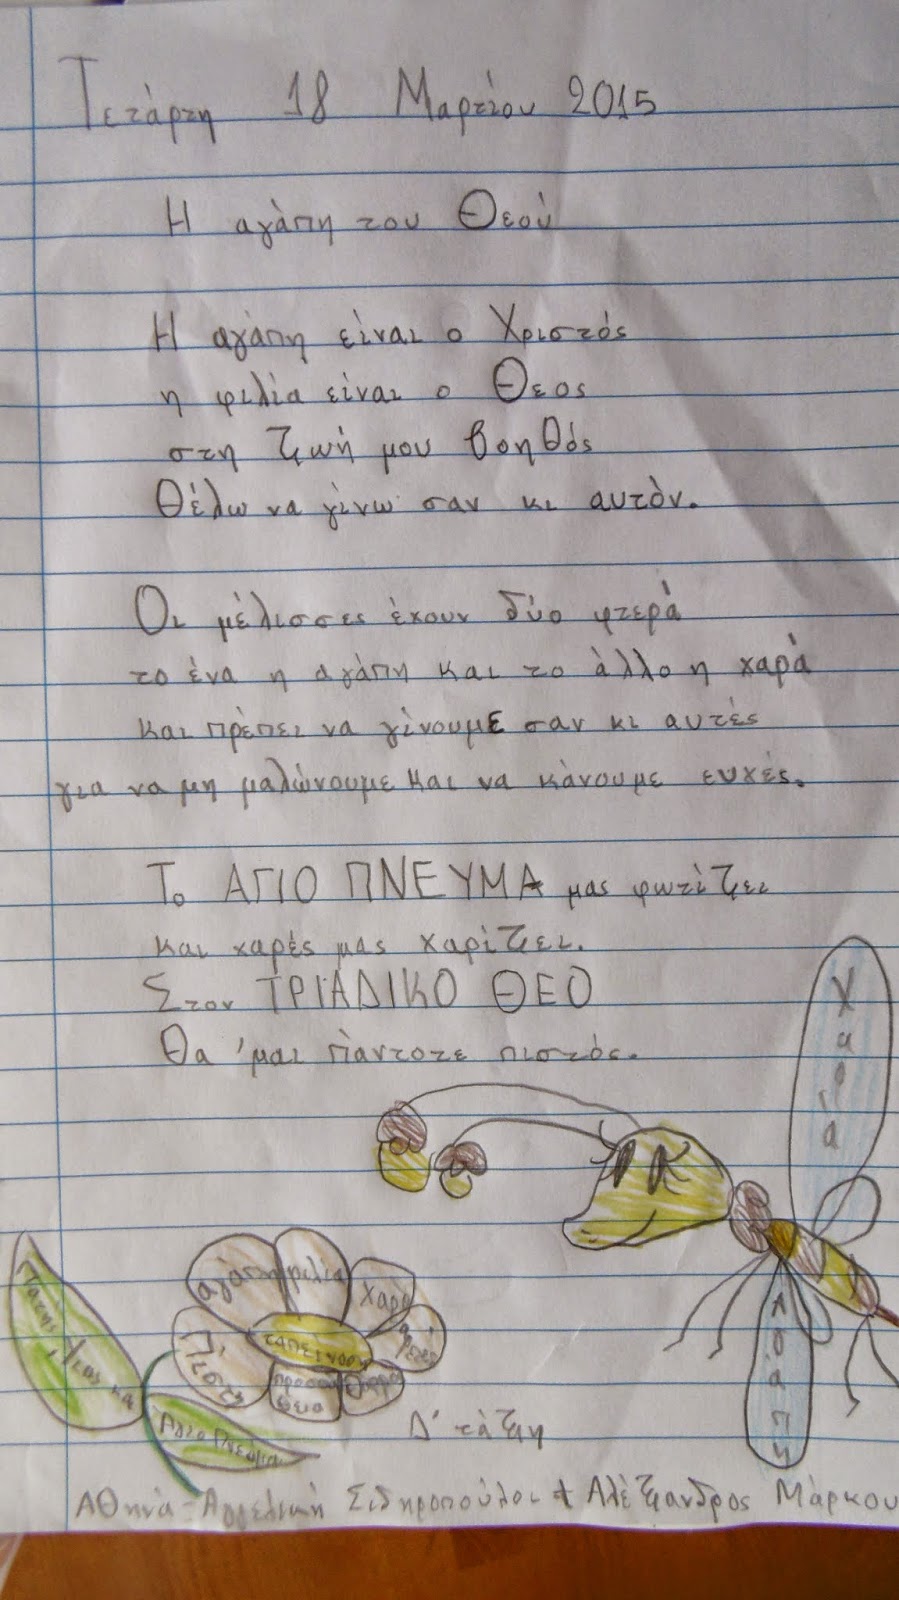 Τετάρτη 18 Μαρτίου 2015
Η αγάπη του Θεού
Η αγάπη είναι ο Χριστός
η φιλία είναι ο Θεος
στη ζωή μου βοηθός
Θέλω να γίνω σαν κι αυτόν.
Οι μέλισσες έχουν δύο φτερά
το ένα η αγάπη και το άλλο η χαρά
και πρέπει να γίνουμε σαν κι αυτές
για να μη μαλώνουμε και να κάνουμε ευχές.
Το ΑΓΙΟ ΠΝΕΥΜΑ μας φωτίζει
και χαρές μας χαρίζει.
Στον ΤΡΙΑΔΙΚΟ ΘΕΟ
Θα 'μαι πάντοτε πιστός.
Χαρά
Αγάπη
αγάπη
φιλία
Χαρά
Πίστη
Θάρρο
Πατήρ Υιος και
Άγιο Πνεύμα
Δ' τάξη
Αθηνά - Αγγελική Σιδηροπούλου + Αλέξανδρος Μάρκου